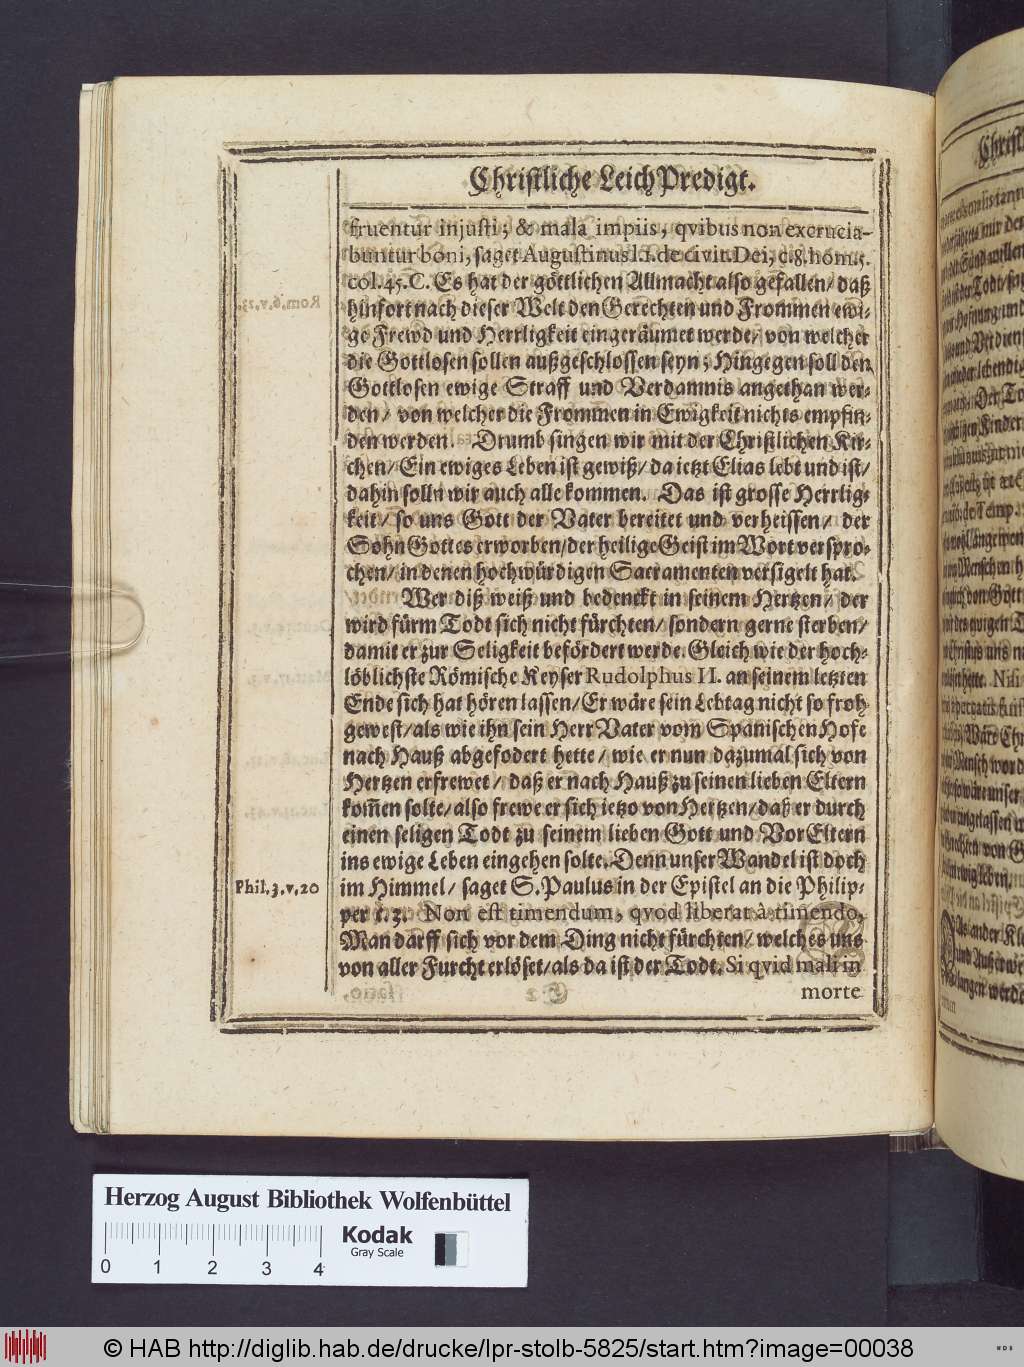 Christliche LeichPredigt.
fruentur injusti, & mala impiis, qvibus non excrucia-
buntur boni, saget Augustinus l.1. de civit. Dei, c.8. hom.5.
col. 45. C. Es hat der göttlichen Allmacht also gefallen/ daß
hinfort nach dieser Welt den Gerechten und Frommen ewi-
ge Frewd und Herrligkeit eingeräumet werde/ von welcher
die Gottlosen sollen außgeschlossen seyn; Hingegen soll den
Gottlosen ewige Straff und Verdamnis angethan wer-
den/ von welcher die Frommen in Ewigkeit nichts empfin-
den werden. Drumb singen wir mit der Christlichen Kir-
chen/ Ein ewiges Leben ist gewiß/ da ietzt Elias lebt und ist/
dahin solln wir auch alle kommen. Das ist grosse Herrlig-
keit/ so uns Gott der Vater bereitet und verheissen/ der
Sohn Gottes erworben/ der heilige Geist im Wort verspro-
chen/ in denen hochwürdigen Sacramenten versigelt hat.
Wer diß weiß und bedenckt in seinem Hertzen/ der
wird fürm Todt sich nicht fürchten/ sondern gerne sterben/
damit er zur Seligkeit befördert werde. Gleich wie der hoch-
löblichste Römische Keyser Rudolphus II. an seinem letzten
Ende sich hat hören lassen/ Er wäre sein Lebtag nicht so froh
gewest/ als wie ihn sein Herr Vater vom Spanischen Hofe
nach Hauß abgefodert hette/ wie er nun dazumal sich von
Hertzen erfrewet/ daß er nach Hauß zu seinen lieben Eltern
kom̃en solte/ also frewe er sich ietzo von Hertzen/ daß er durch
einen seligen Todt zu seinem lieben Gott und VorEltern
ins ewige Leben eingehen solte. Denn unser Wandel ist doch
Phil. 3. v. 20
im Himmel/ saget S. Paulus in der Epistel an die Philip-
per c. 3. Non est timendum, qvod liberat à timendo,
Man darff sich vor dem Ding nicht fürchten/ welches uns
von aller Furcht erlöset/ als da ist der Todt. Si qvid mali in
morte
Herzog August Bibliothek Wolfenbüttel
0 1 2 3 4
Kodak
Gray Scale
© HAB http://diglib.hab.de/drucke/lpr-stolb-5825/start.htm?image=00038